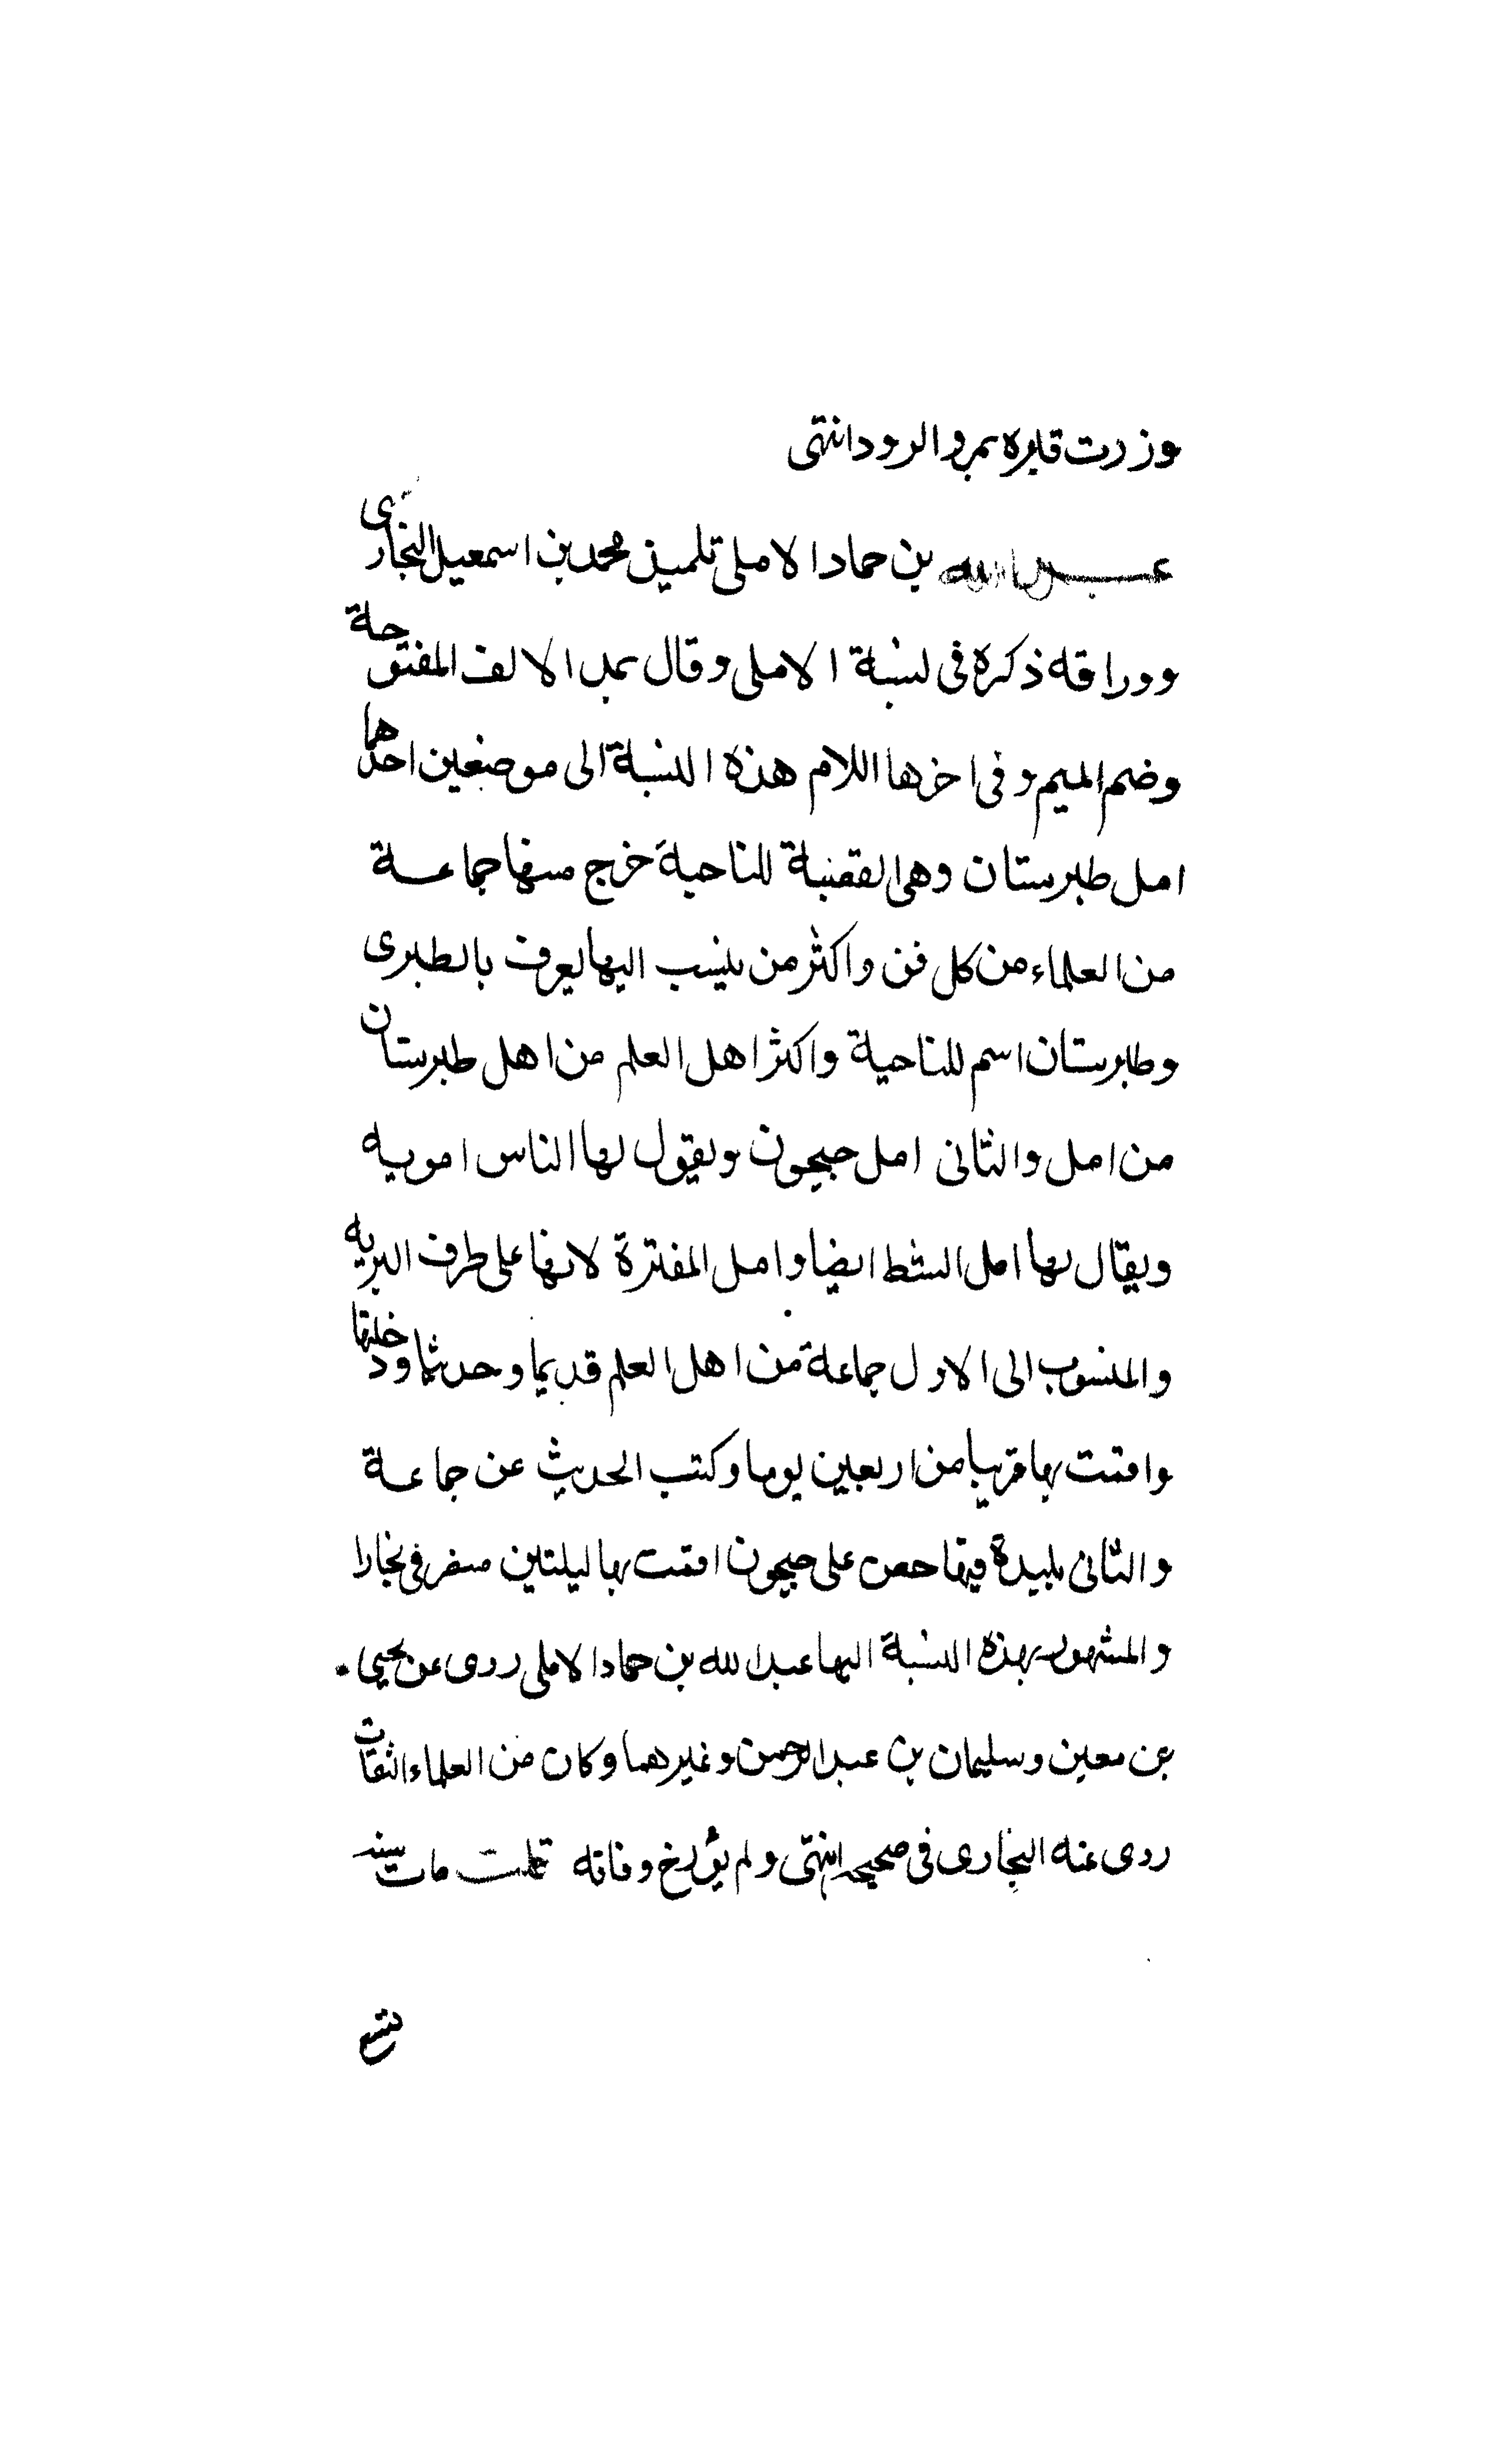 وزرت قبره بمرو الرود انتهى
عبد الله بن حماد الاملى تلميذ محمد بن اسمعيل البخارى
ووراقه ذكره فى نسبة الاملى وقال بمد الالف المفتوحة
وضم الميم وفى اخرها اللام هذه النسبة الى موضعين احدهما
امل طبرستان وهى القصبة للناحية خرج منها جماعة
من العلماء من كل فن واكثر من ينسب اليها يعرف بالطبرى
وطبرستان اسم للناحية واكثر اهل العلم من اهل طبرستان
من امل والثانى امل جيحون ويقول لها الناس امويه
ويقال لها امل الشط ايضا وامل المفترة لانها على طرف البريه
والمنسوب الى الاول جماعة من اهل العلم قديما وحديثا ودخلتها
واقمت بها قريبا من اربعين يوما وكتب الحديث عن جماعة
والثانى بليدة فيها حصن على جيحون اقمت بها ليلتين منفر فى بخارا
والمشهور بهذه النسبة اليها عبد الله بن حماد الاملى روى عن يحيى
بن معين وسليمان بن عبد الرحمن وغيرهما وكان من العلماء الثقات
روى عنه البخارى فى صحيحه انتهى ولم يؤرخ وفاته قلت مات سنه